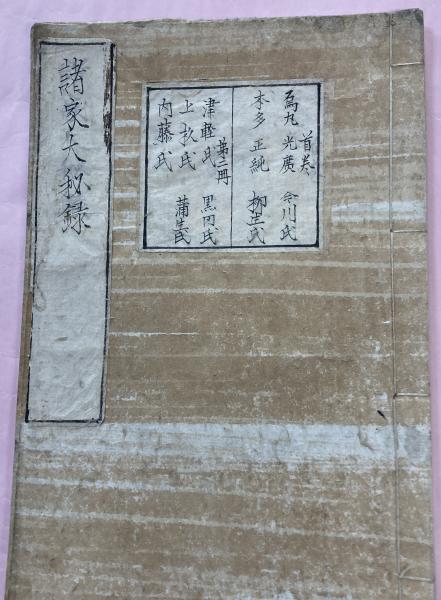 諸家大秘録
首巻
烏丸光廣 今川氏
本多正純 柳生氏
第二冊
津軽氏 黒田氏
上杦氏 蒲生氏
内藤氏